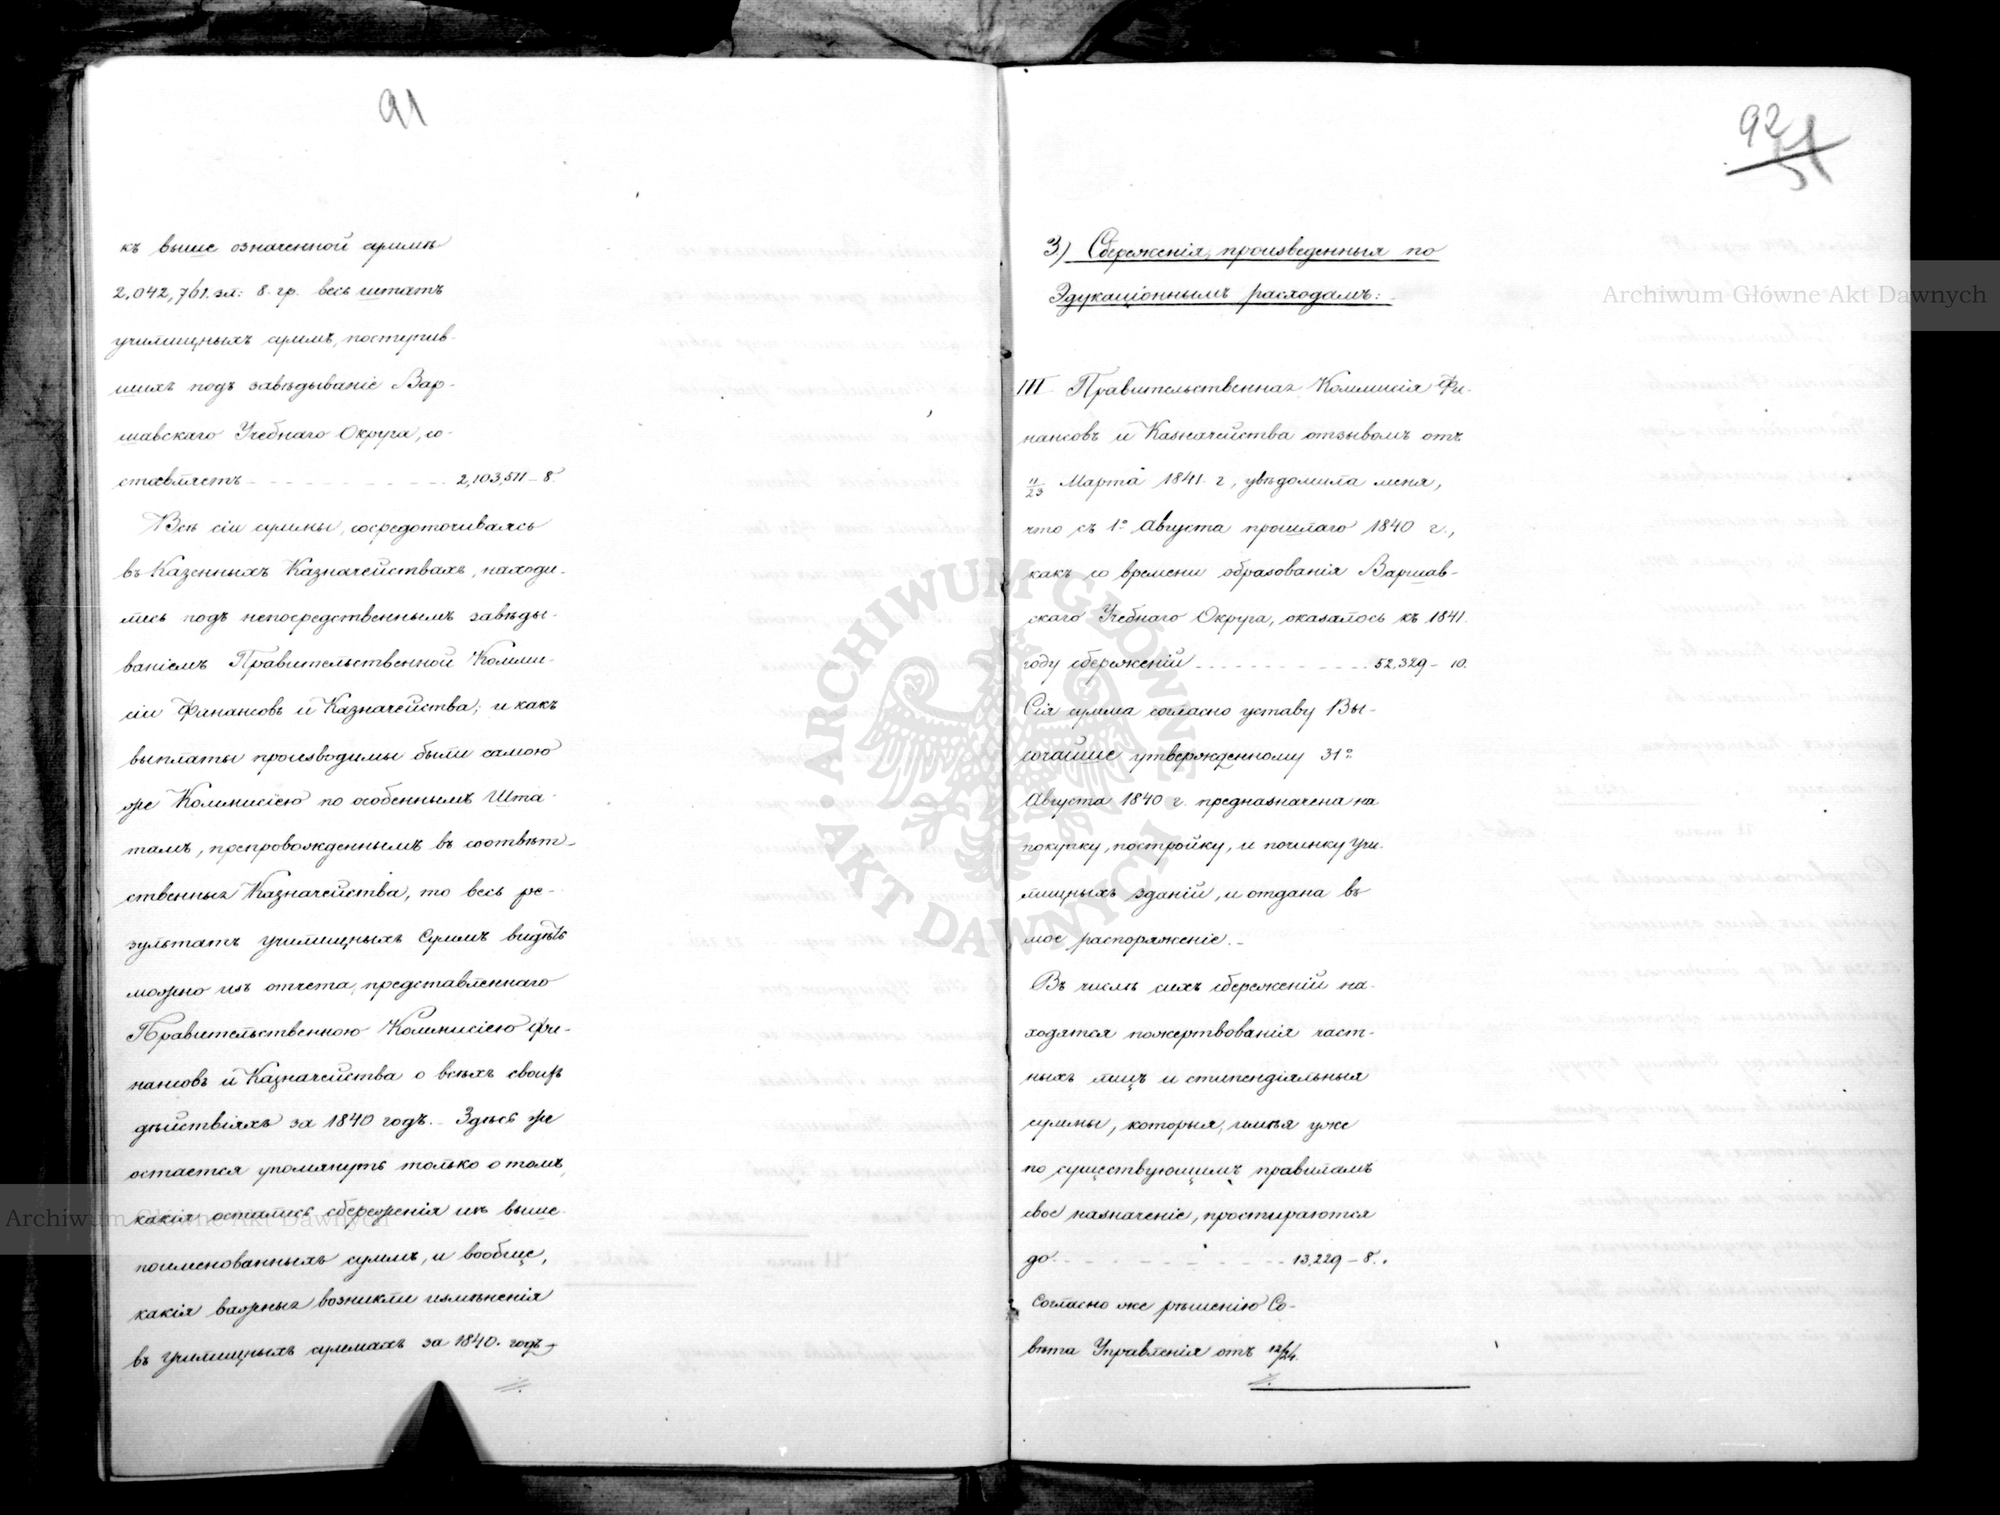 91
къ выше означенной суммѣ
2,042,761. зл: 8. гр. весь штатъ
училищныхъ суммъ, поступив-
шихъ подъ завѣдываніе Вар-
шавскаго Учебнаго Округа, со-
ставляетъ - - - - - - - - - 2,103,511 - 8.
Всѣ сіи суммы, сосредоточиваясь
въ Казенныхъ Казначействахъ, находи-
лись подъ непосредственнымъ завѣды-
ваніемъ Правительственной Комми-
сіи Финансовъ и Казначейства; и какъ
выплаты производимы были самою
же Коммисіею по особеннымъ Шта-
тамъ, препровожденнымъ въ соотвѣт-
ственныя Казначейства, то весь ре-
зультатъ училищныхъ Суммъ видѣть
можно изъ отчета, представленнаго
Правительственною Коммисіею Фи-
нансовъ и Казначейства о всѣхъ своихъ
дѣйствіяхъ за 1840 годъ. - Здѣсь же
остается упомянуть только о томъ,
какія остались сбереженія изъ выше-
поименованныхъ суммъ, и вообще,
какія важныя возникли измѣненія
въ училищныхъ суммахъ за 1840. годъ,
92
51
3) Сбереженія, произведенныя по
Эдукаціоннымъ расходамъ:
III. Правительственная Коммисія Фи-
нансовъ и Казначейства отзывомъ отъ
11/23 Марта 1841. г., увѣдомила меня,
что съ 1го Августа прошлаго 1840 г.,
какъ со времени образованія Варшав-
скаго Учебнаго Округа, оказалось къ 1841.
году сбереженій - - - - - - - - - 52,329 - 10.
Сія сумма согласно уставу Вы-
сочайше утвержденному 31го
Августа 1840 г. предназначена на
покупку, постройку, и починку учи-
лищныхъ зданій, и отдана въ
мое распоряженіе. -
Въ числѣ сихъ сбереженій на-
ходятся пожертвованія част-
ныхъ лицъ и стипендіяльныя
суммы, которыя, имѣя уже
по существующимъ правиламъ
свое назначеніе, простираются
до - - - - - - - - - 13,229 - 8.
Согласно же рѣшенію Со-
вѣта Управленія отъ 12/24.
ARCHIWUM GŁÓWNE AKT DAWNYCH
Archiwum Główne Akt Dawnych
Archiwum Główne Akt Dawnych